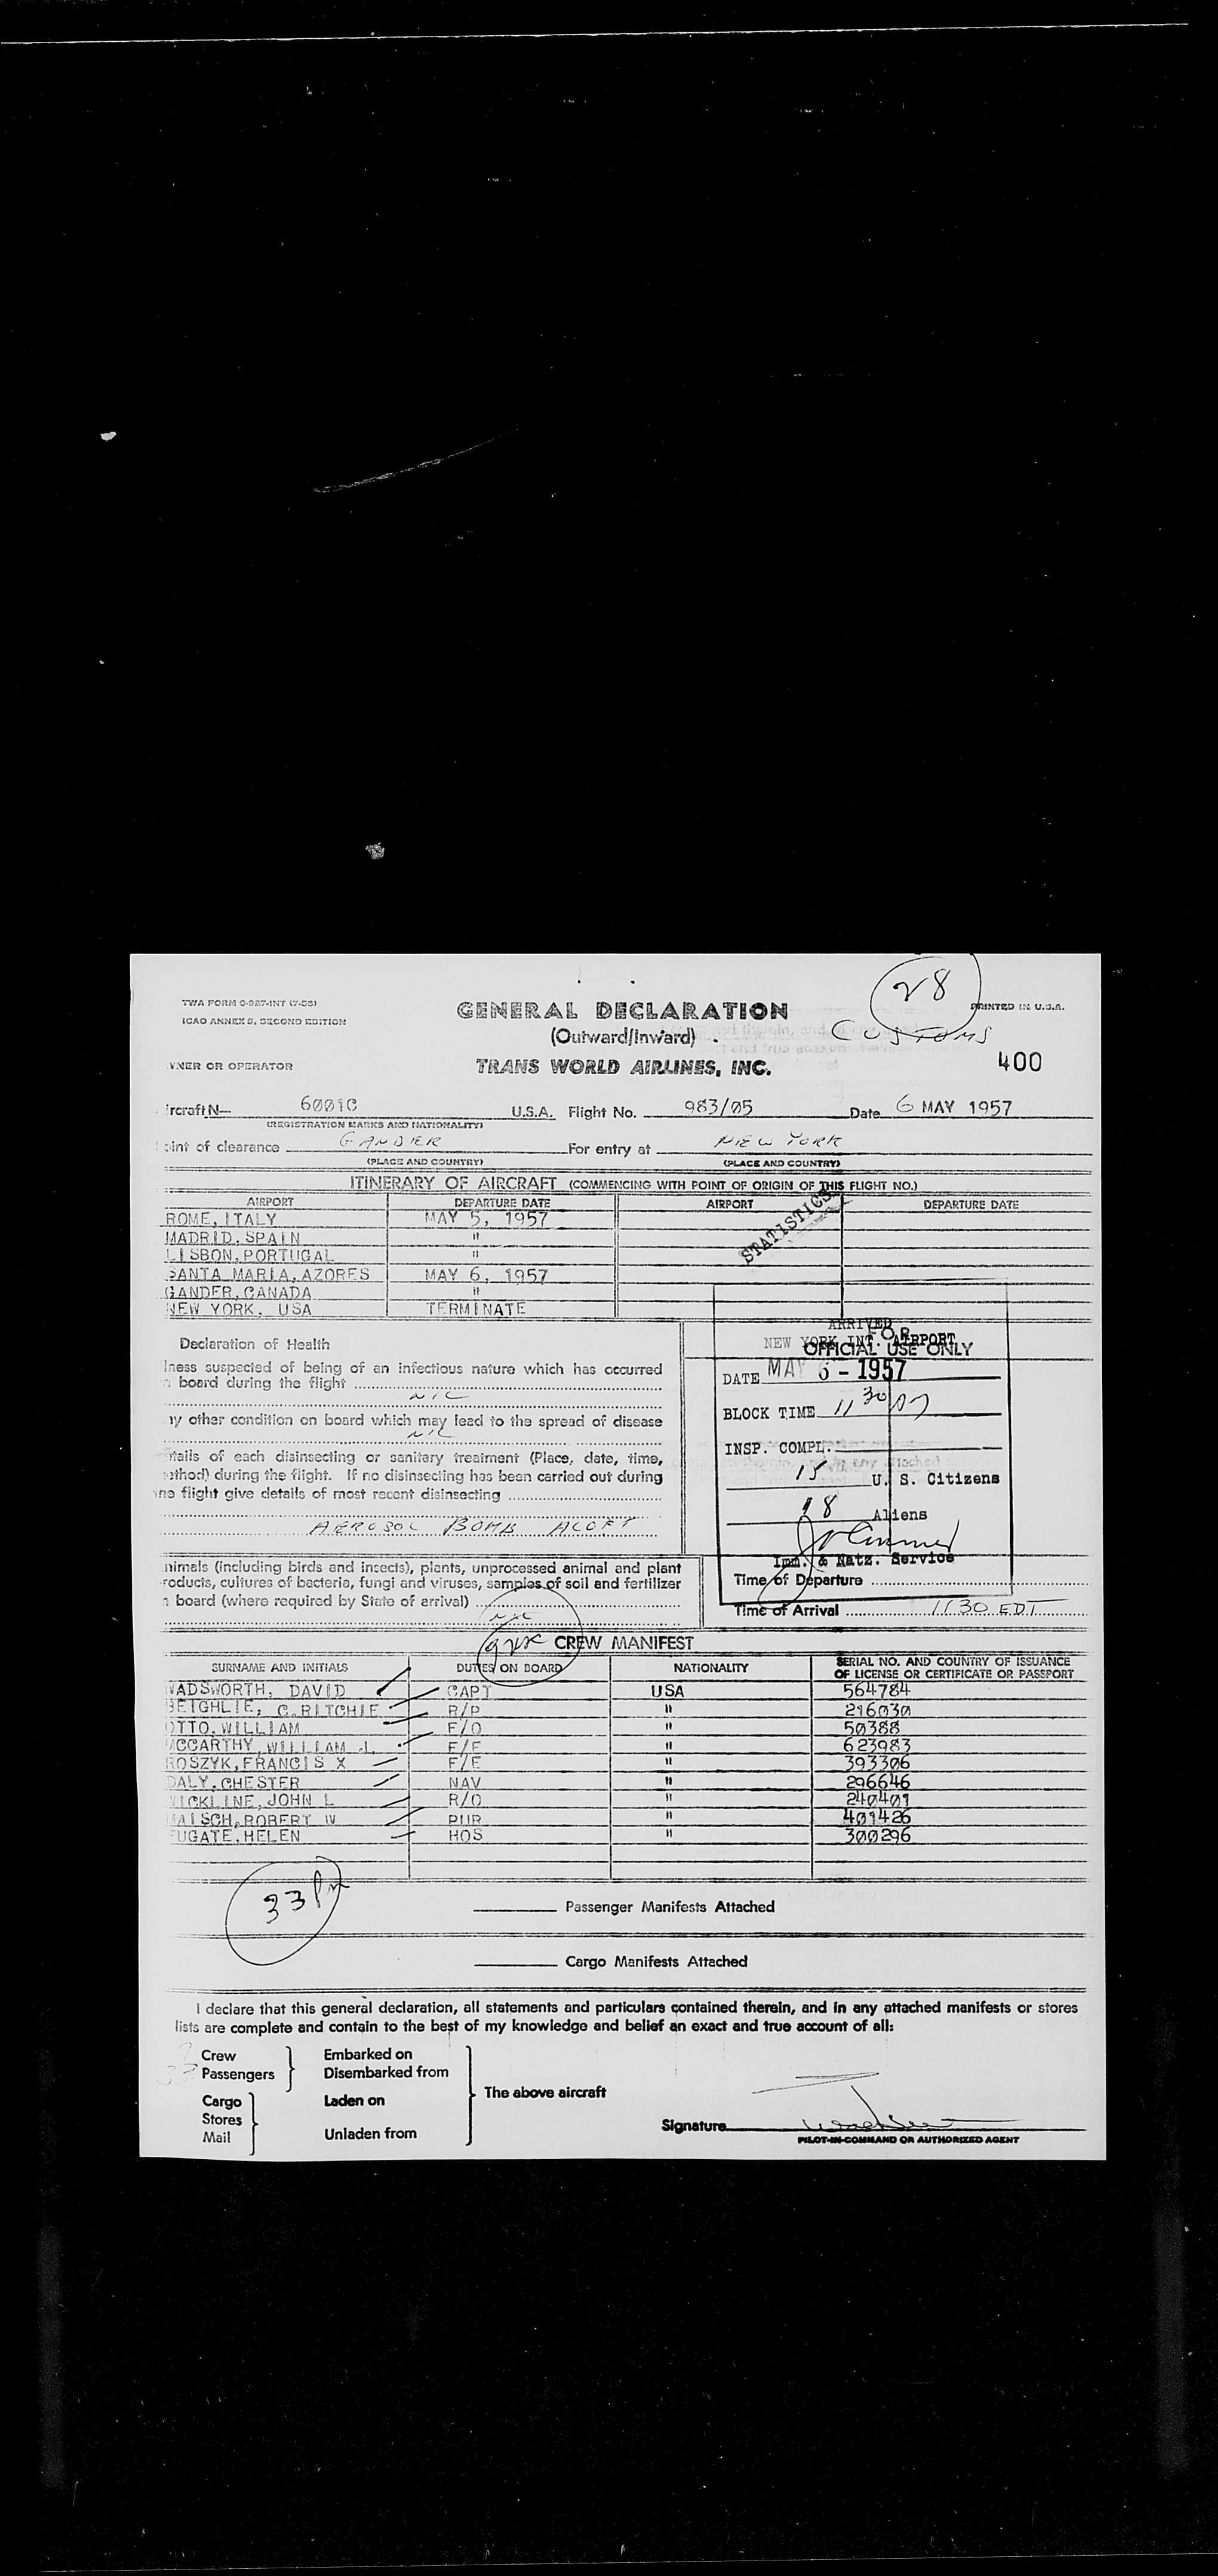 28
TWA FORM O-987-INT (7-53)
GENERAL DECLARATION
PRINTED IN U.S.A.
ICAO ANNEX 9, SECOND EDITION
(Outward/Inward)
CUSTOMS
400
WNER OR OPERATOR
TRANS WORLD AIRLINES, INC.
ircraft N— 6001C U.S.A. Flight No. 983/05 Date 6 MAY 1957
(REGISTRATION MARKS AND NATIONALITY)
oint of clearance GANDER For entry at NEW YORK
(PLACE AND COUNTRY) (PLACE AND COUNTRY)
ITINERARY OF AIRCRAFT (COMMENCING WITH POINT OF ORIGIN OF THIS FLIGHT NO.)
AIRPORT DEPARTURE DATE AIRPORT DEPARTURE DATE
ROME, ITALY MAY 5, 1957
MADRID, SPAIN "
LISBON, PORTUGAL "
SANTA MARIA, AZORES MAY 6, 1957
GANDER, CANADA "
NEW YORK, USA TERMINATE
STATISTICS
Declaration of Health
lness suspected of being of an infectious nature which has occurred
board during the flight
NIL
ny other condition on board which may lead to the spread of disease
NIL
etails of each disinsecting or sanitary treatment (Place, date, time,
ethod) during the flight. If no disinsecting has been carried out during
he flight give details of most recent disinsecting
AEROSOL BOMB ALOFT
nimals (including birds and insects), plants, unprocessed animal and plant
roducts, cultures of bacteria, fungi and viruses, samples of soil and fertilizer
board (where required by State of arrival)
NIL
ARRIVED
NEW YORK INT. AIRPORT
FOR
OFFICIAL USE ONLY
DATE MAY 6 - 1957
BLOCK TIME 11 30
INSP. COMPL.
15 U. S. Citizens
18 Aliens
Imm. & Natz. Service
Time of Departure
Time of Arrival 1130 EDT
CREW MANIFEST
SURNAME AND INITIALS DUTIES ON BOARD NATIONALITY SERIAL NO. AND COUNTRY OF ISSUANCE
OF LICENSE OR CERTIFICATE OR PASSPORT
WADSWORTH, DAVID CAPT USA 564784
BEIGHLIE, C.RITCHIE R/P " 216030
OTTO, WILLIAM F/O " 50388
MCCARTHY, WILLIAM J. F/E " 623983
ROSZYK, FRANCIS X F/E " 393306
DALY, CHESTER NAV " 296646
WICKLINE, JOHN L R/O " 240401
MAISCH, ROBERT W PUR " 401426
FUGATE, HELEN HOS " 300296
33
Passenger Manifests Attached
Cargo Manifests Attached
I declare that this general declaration, all statements and particulars contained therein, and in any attached manifests or stores
lists are complete and contain to the best of my knowledge and belief an exact and true account of all:
Crew Embarked on
Passengers Disembarked from
The above aircraft
Cargo Laden on
Stores
Mail Unladen from
Signature
PILOT-IN-COMMAND OR AUTHORIZED AGENT